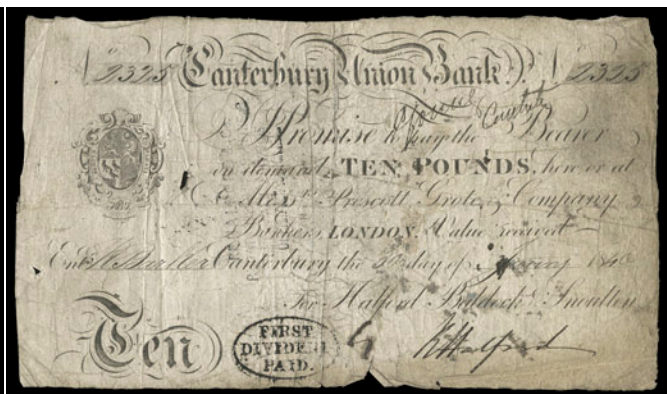 No 2325 Canterbury Union Bank No 2325
I Promise to pay the Bearer
on demand TEN POUNDS, here or at
Messrs Prescott Grote & Company
Bankers, LONDON. Value received
Canterbury the day of 1840
For Halford Baldock & Snoulten
Ten
FIRST
DIVIDEND
PAID.